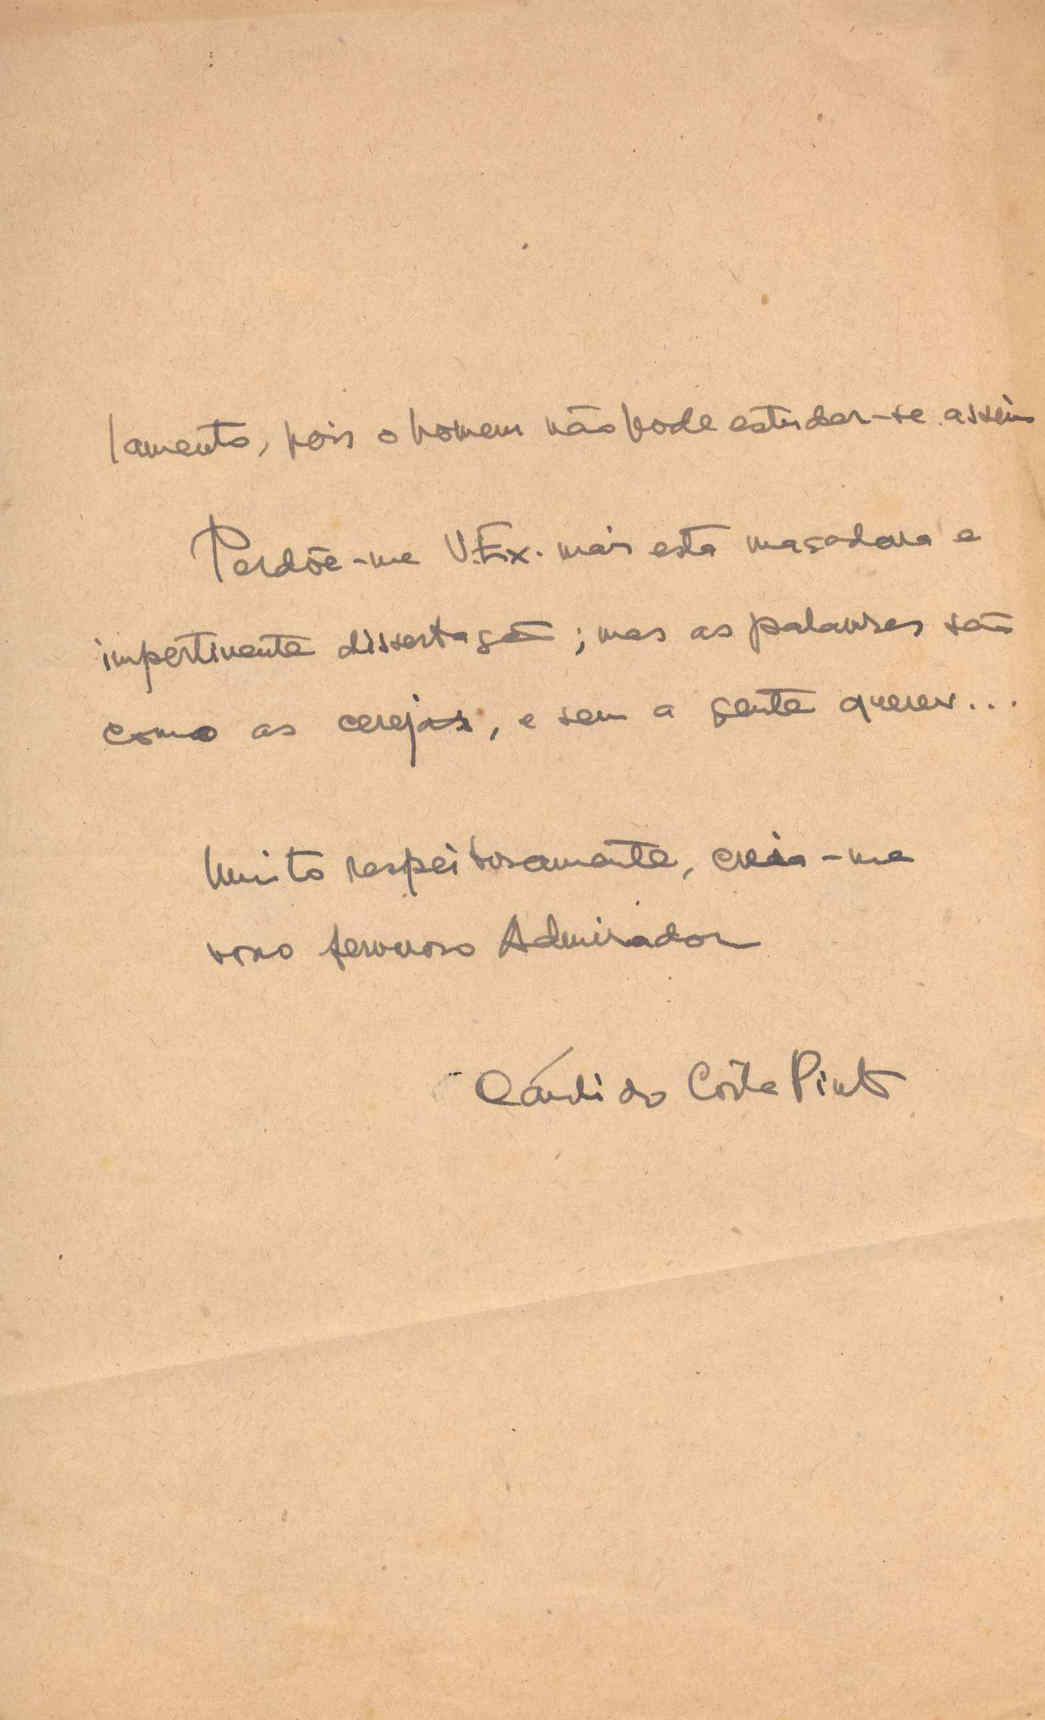 lamento, pois o homem não pode estudar-se assim
Perdõe-me V.Ex. mais esta maçadora e
impertinente dissertação; mas as palavras são
como as cerejas, e sem a gente querer...
Muito respeitosamente, creia-me
vosso fervoroso Admirador
Cândido Costa Pinto